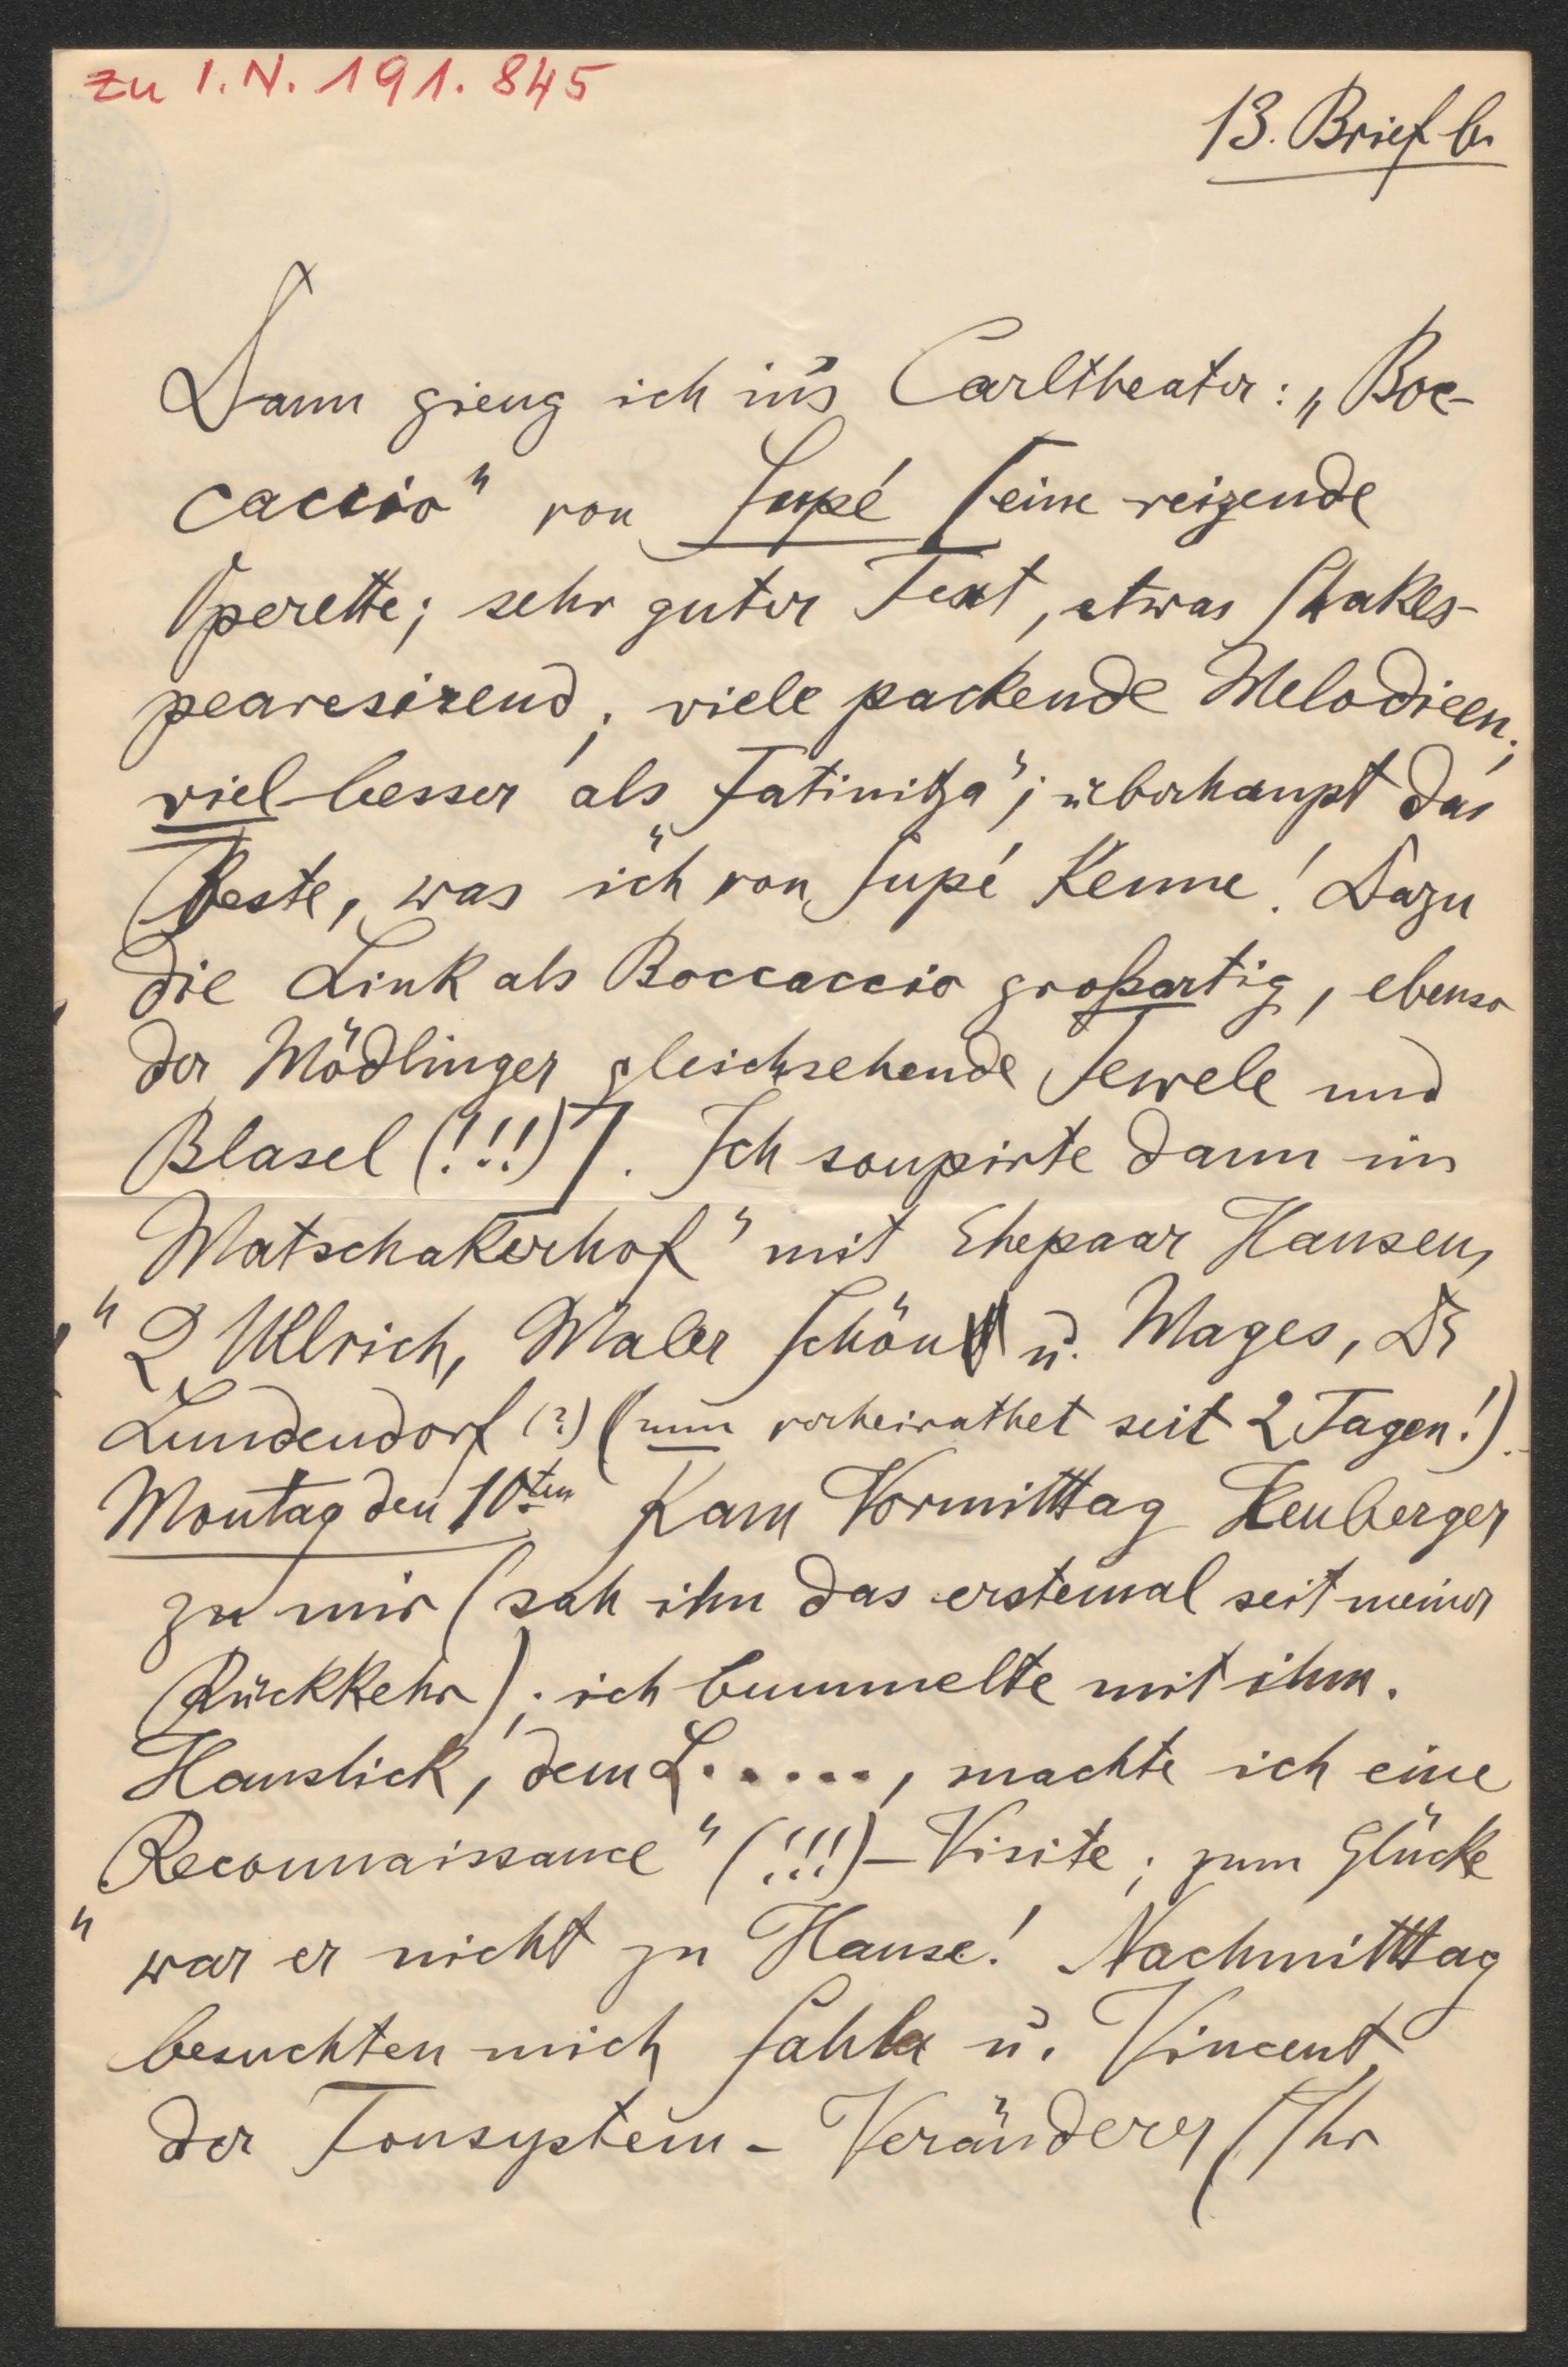 zu I.N. 191.845
13. Brief b.
Dann gieng ich in's Carltheater: „Boc-
caccio" von Supé [eine reizende
Operette; sehr guter Text, etwas Shakes-
pearesirend; viele packende Melodieen;
viel besser als „Fatinitza"; überhaupt das
Beste, was ich von Supé kenne! Dazu
die Link als Boccaccio großartig, ebenso
der Mödlinger gleichsehende Tewele und
Blasel (!!!)]. Ich soupirte dann im
„Matschakerhof" mit Ehepaar Hansen,
2 Ullrich, Maler Schön u. Mages, Dr
Lundendorf (?) (nun verheirathet seit 2 Tagen!).
Montag den 10ten kam Vormittag Heuberger
zu mir (sah ihn das erstemal seit meiner
Rückkehr); ich bummelte mit ihm.
Hanslick, dem L......, machte ich eine
„Reconnaissance" (!!!)-Visite; zum Glücke
war er nicht zu Hause! Nachmittag
besuchten mich Sahla u. Vincent,
der Tonsystem-Veränderer (Ihr